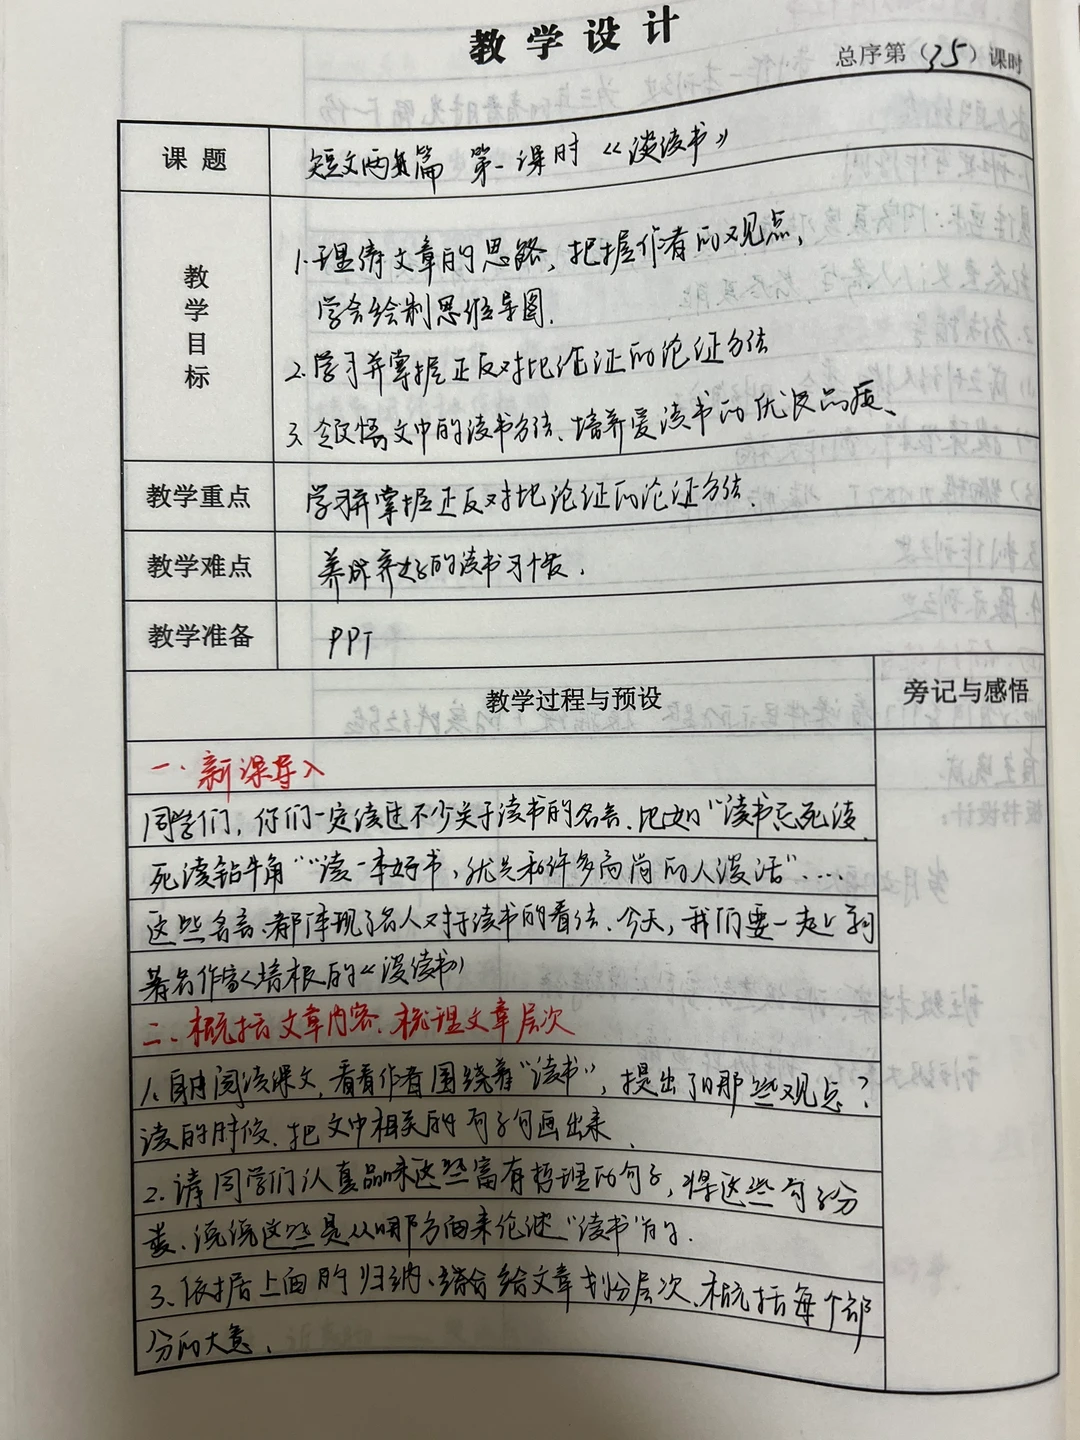 教学设计
总序第（35）课时
课题
短文两篇 第一课时《谈读书》
教学目标
1.理清文章的思路，把握作者的观点，
学会绘制思维导图.
2.学习并掌握正反对比论证的论证方法
3.领悟文中的读书方法、培养爱读书的优良品质、
教学重点
学习并掌握正反对比论证的论证方法.
教学难点
养成养好的读书习惯.
教学准备
PPT
教学过程与预设
旁记与感悟
一.新课导入
同学们，你们一定读过不少关于读书的名言、比如“读书忌死读
死读钻牛角”“读一本好书，就是和许多高尚的人谈话”....
这些名言、都体现了名人对于读书的看法、今天，我们要一起
著名作家培根的《谈读书》
二、概括文章内容、梳理文章层次
1.自由阅读课文，看看作者围绕着“读书”，提出了哪些观点？
读的时候、把文中相关的句子勾画出来.
2.请同学们认真品味这些富有哲理的句子，将这些句子分
类、说说这些是从哪方面来论述“读书”的.
3、依据上面的归纳、结合给文章划分层次、概括每个部
分的大意.